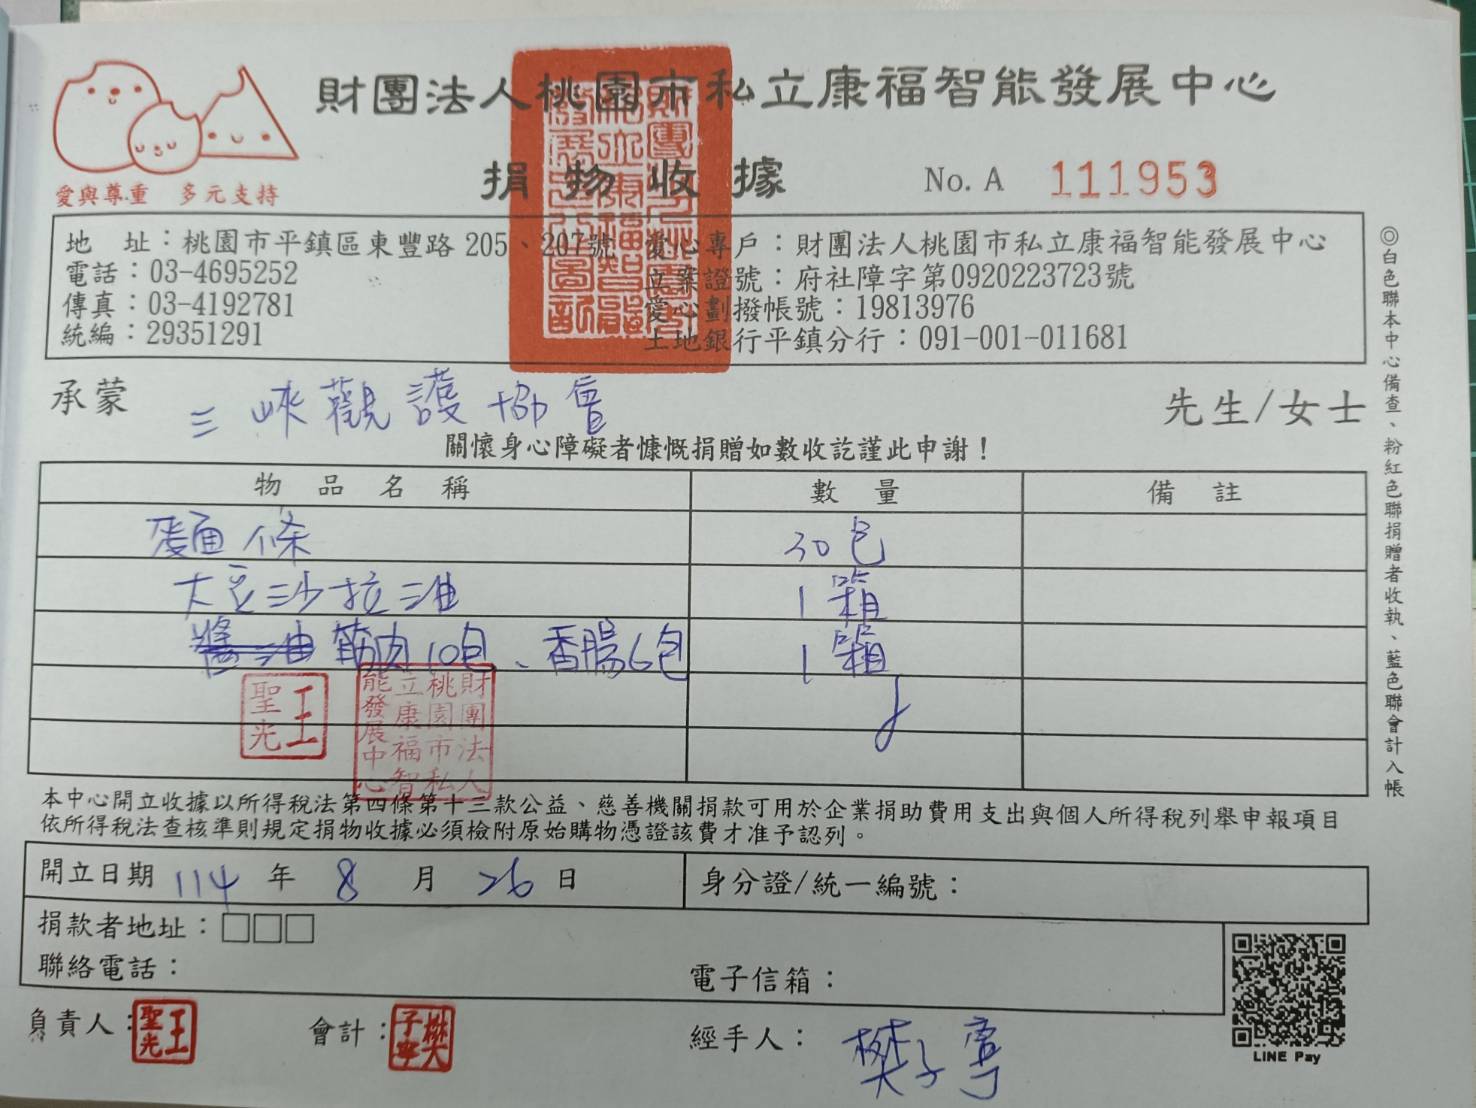 財團法人桃園市私立康福智能發展中心
捐物收據 No. A 111953
愛與尊重 多元支持
地 址：桃園市平鎮區東豐路 205、207號
電話：03-4695252
傳真：03-4192781
統編：29351291
愛心專戶：財團法人桃園市私立康福智能發展中心
立案證號：府社障字第0920223723號
愛心劃撥帳號：19813976
土地銀行平鎮分行：091-001-011681
承蒙 三峽觀護協會 先生/女士
關懷身心障礙者慷慨捐贈如數收訖謹此申謝！
物品名稱 數量 備註
麵條 30包
大豆沙拉油 1箱
醬油 筋肉10包、香腸6包 1箱
王聖光
財團法人桃園市私立康福智能發展中心
本中心開立收據以所得稅法第四條第十三款公益、慈善機關捐款可用於企業捐助費用支出與個人所得稅列舉申報項目
依所得稅法查核準則規定捐物收據必須檢附原始購物憑證該費才准予認列。
開立日期 114 年 8 月 26 日 身分證/統一編號：
捐款者地址：□□□
聯絡電話： 電子信箱：
負責人：王聖光 會計：樊子寧 經手人：樊子寧
LINE Pay
◎白色聯本中心備查、粉紅色聯捐贈者收執、藍色聯會計入帳